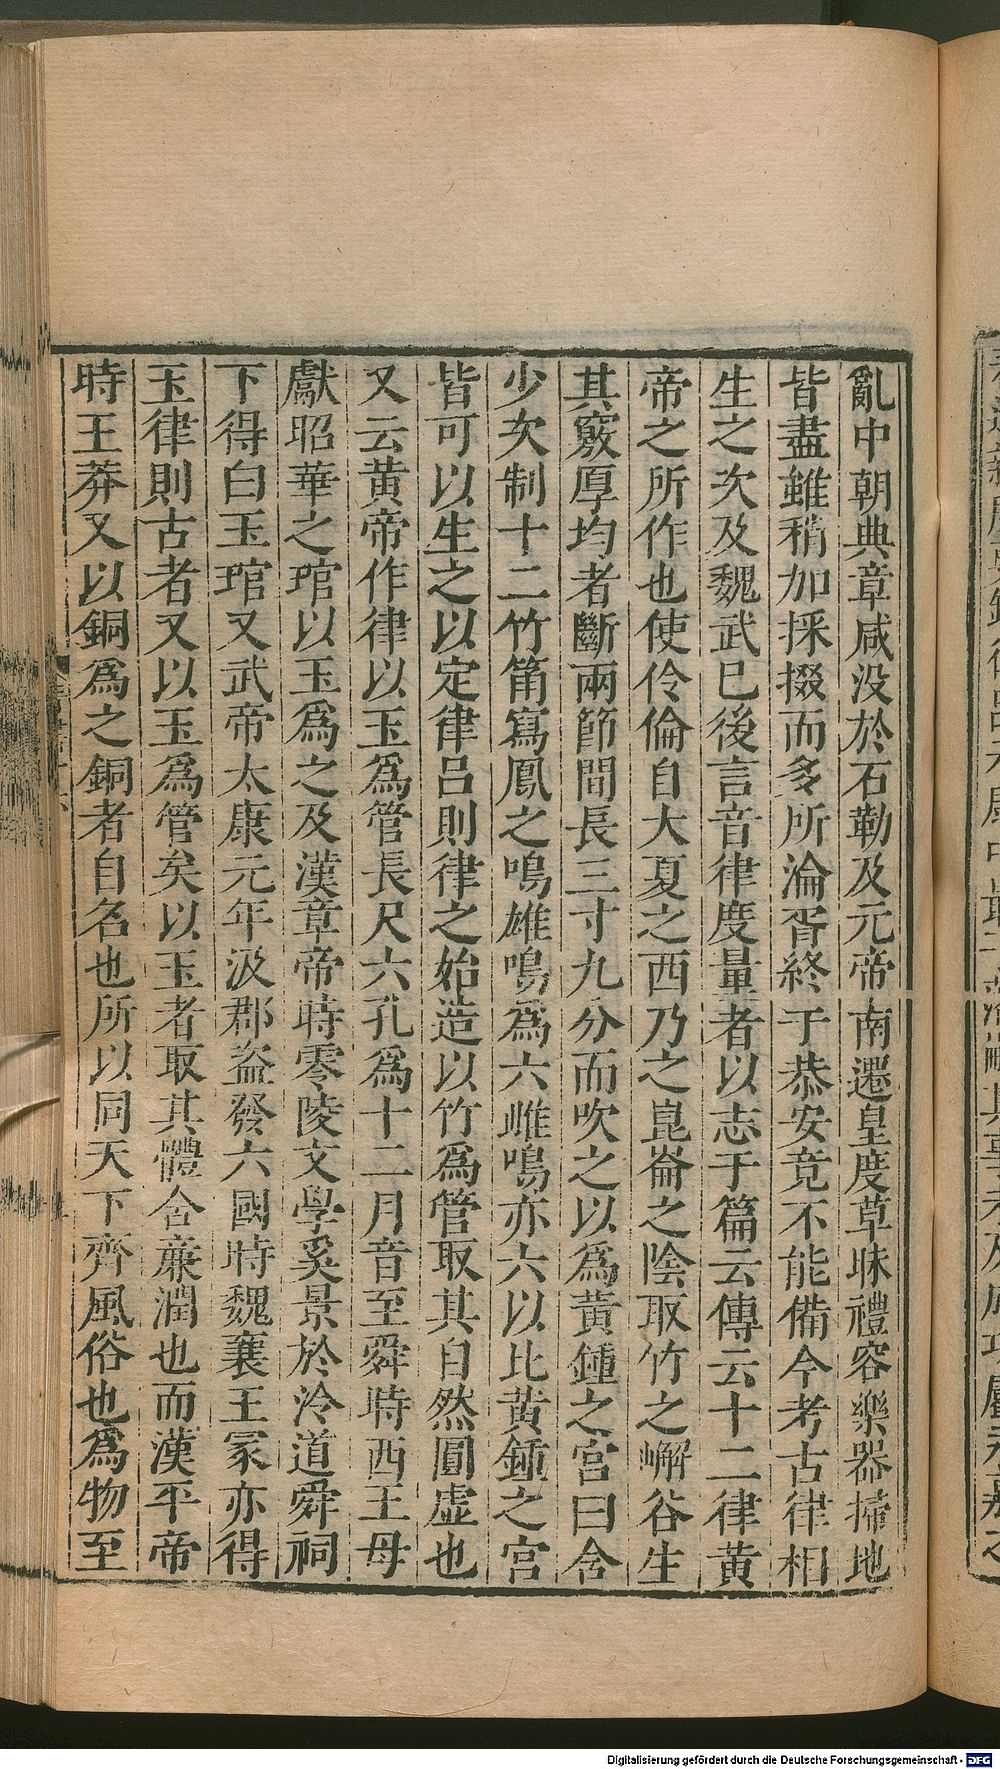 亂中朝典章咸没於石勒及元帝南遷皇度草昧禮容樂器掃地
皆盡雖稍加採掇而多所淪胥終于恭安竟不能備今考古律相
生之次及魏武已後言音律度量者以志于篇云傳云十二律黃
帝之所作也使伶倫自大夏之西乃之崑崙之陰取竹之嶰谷生
其竅厚均者斷兩節間長三寸九分而吹之以爲黃鍾之宮曰含
少次制十二竹筩寫鳳之鳴雄鳴爲六雌鳴亦六以比黃鍾之宮
皆可以生之以定律吕則律之始造以竹爲管取其自然圓虛也
又云黃帝作律以玉爲管長尺六孔爲十二月音至舜時西王母
獻昭華之琯以玉爲之及漢章帝時零陵文學奚景於泠道舜祠
下得白玉琯又武帝太康元年汲郡盜發六國時魏襄王冢亦得
玉律則古者又以玉爲管矣以玉者取其體含亷潤也而漢平帝
時王莽又以銅爲之銅者自名也所以同天下齊風俗也爲物至
Digitalisierung gefördert durch die Deutsche Forschungsgemeinschaft - DFG